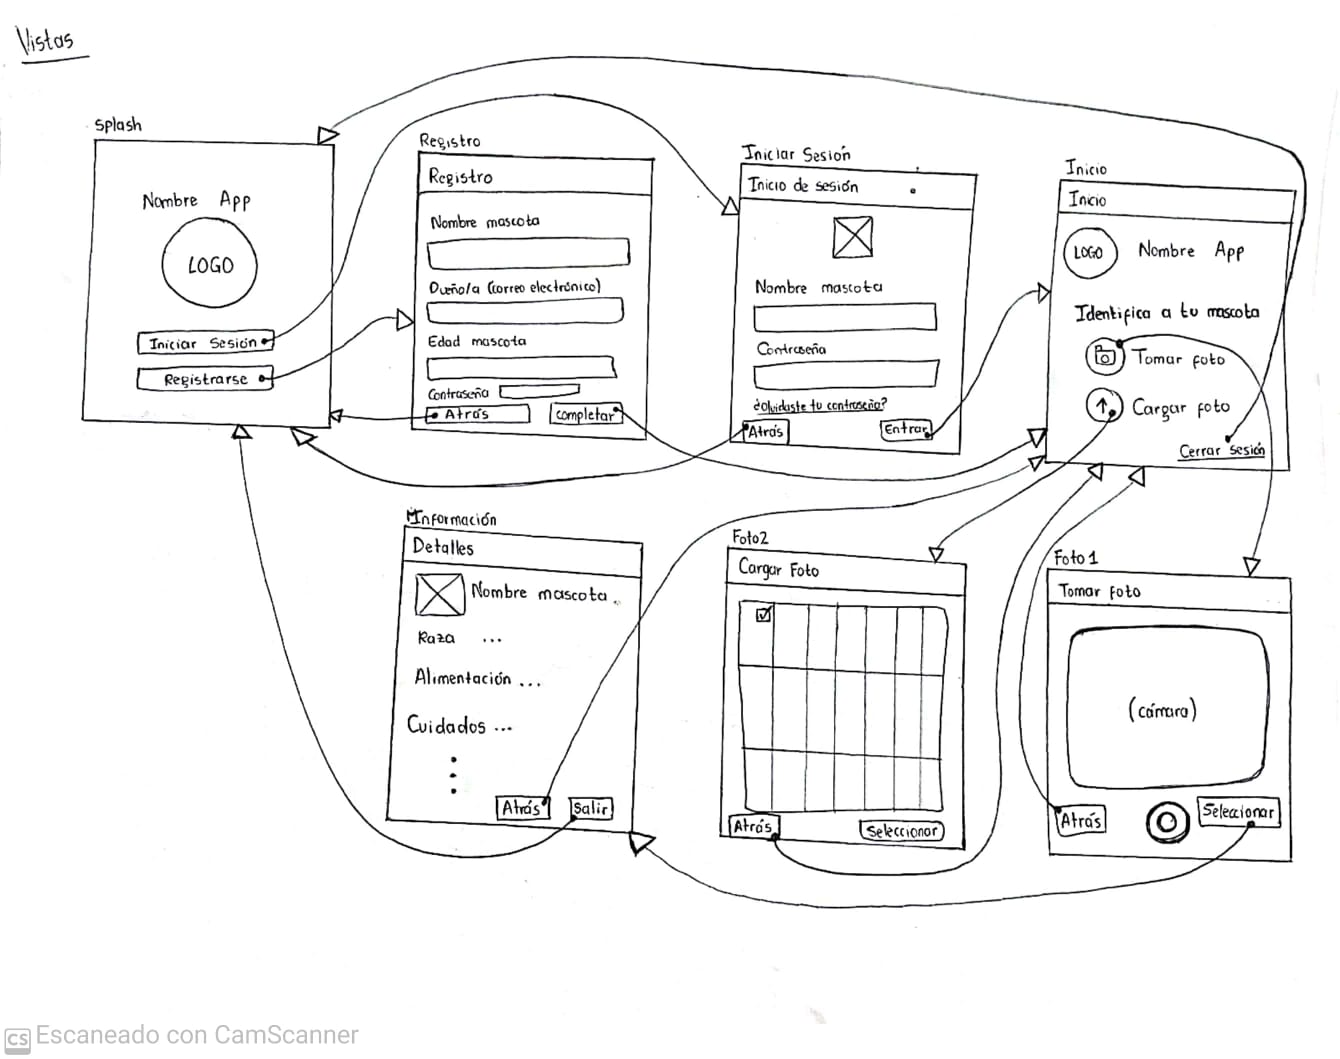 Vistas
Splash
Nombre App
LOGO
Iniciar Sesión
Registrarse
Registro
Registro
Nombre mascota
Dueño/a (correo electrónico)
Edad mascota
Contraseña
Atrás
Completar
Iniciar Sesión
Inicio de sesión
Nombre mascota
Contraseña
¿Olvidaste tu contraseña?
Atrás
Entrar
Inicio
Inicio
LOGO
Nombre App
Identifica a tu mascota
Tomar foto
Cargar foto
Cerrar sesión
Información
Detalles
Nombre mascota
Raza ...
Alimentación ...
Cuidados ...
Atrás
Salir
Foto2
Cargar Foto
Atrás
Seleccionar
Foto1
Tomar foto
(cámara)
Atrás
Seleccionar
CS Escaneado con CamScanner